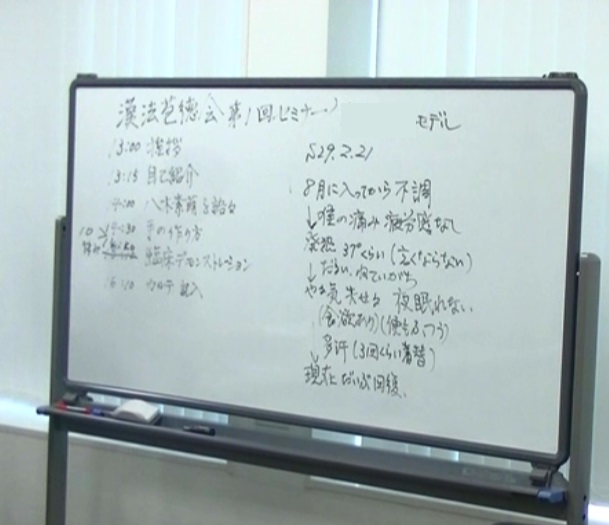 漢法苞徳会第1回セミナー
13:00 挨拶
13:15 自己紹介
14:00 八木素萌を語る
14:30 手の作り方
臨床デモンストレーション
16:10 カルテ記入
モデル
S29.2.21
8月に入ってから 不調
↓ 喉の痛み 疲労感なし
発熱 37°くらい (高くならない)
↓ だるい、ねていがち
やる気 失せる 夜眠れない
(食欲あり)(便もふつう)
多汗 (3回くらい着替)
↓
現在 だいぶ回復。